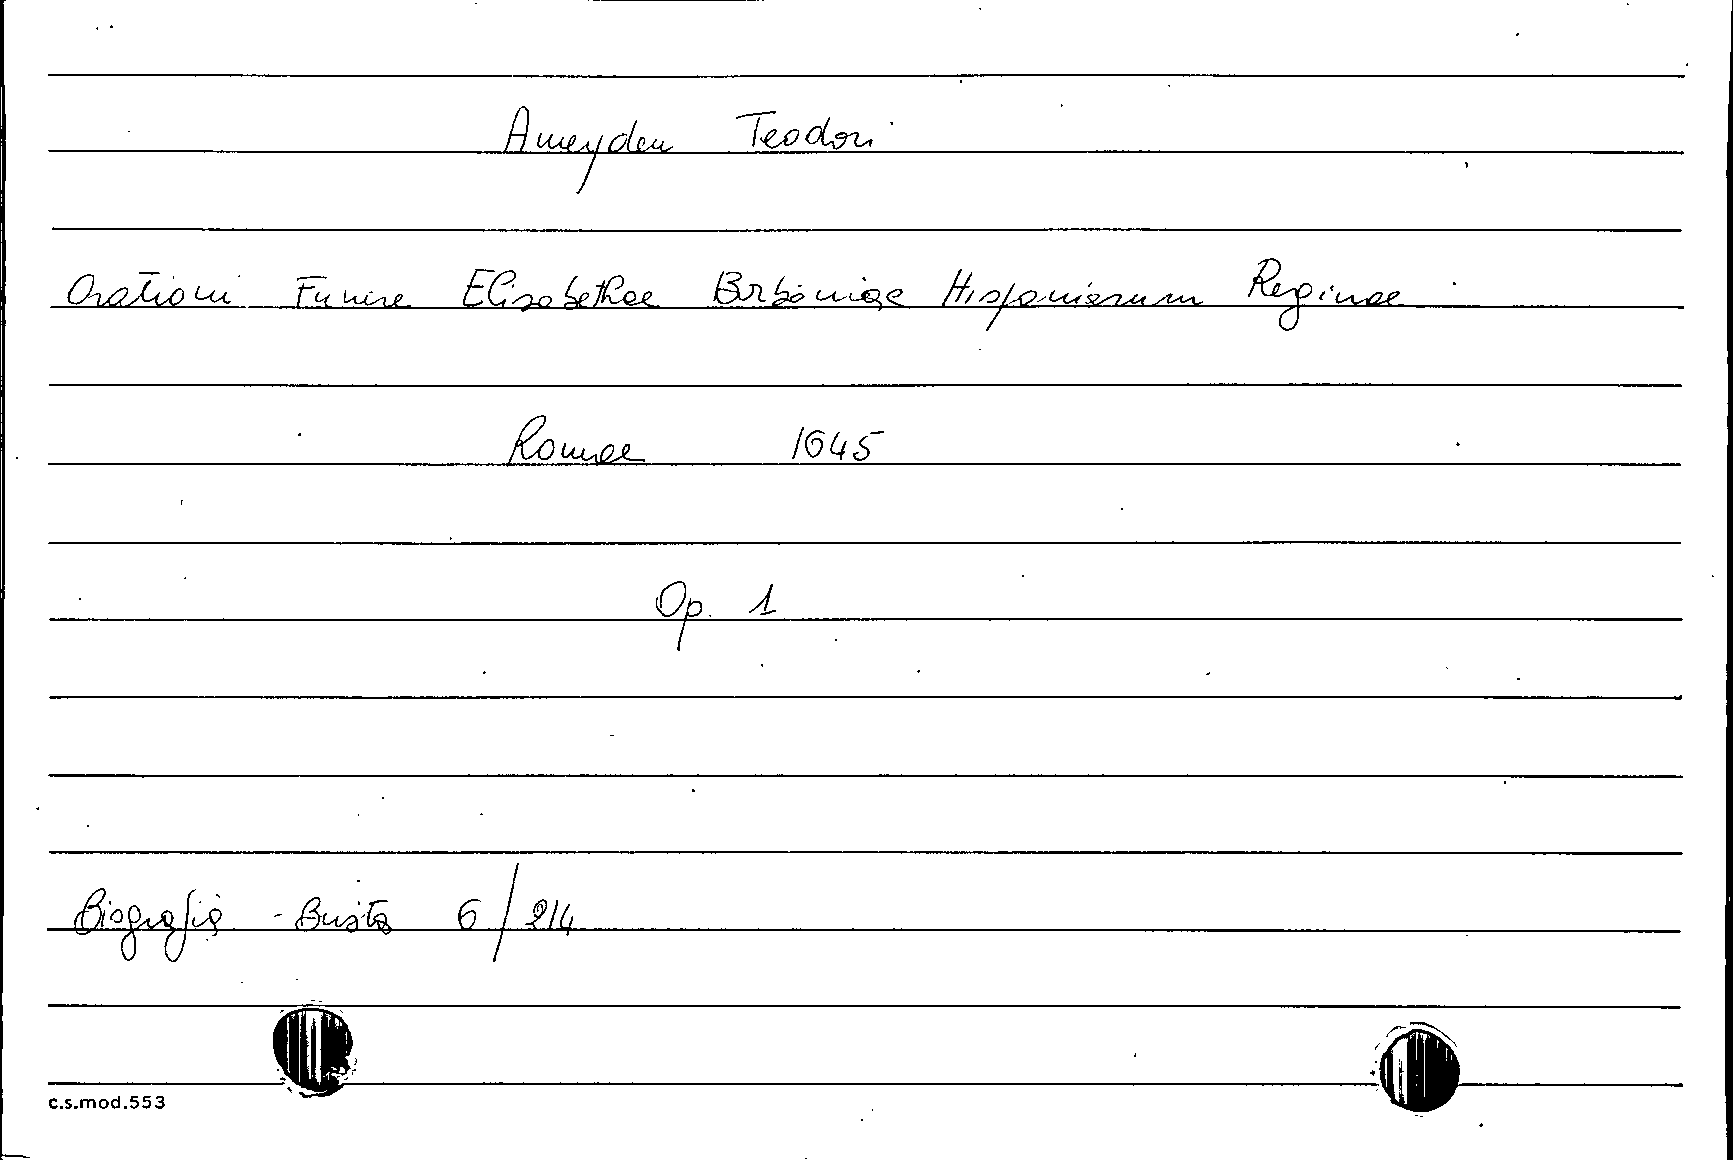 Ameyden Teodori
Orationi Funere Elisabethae Borboniae Hispaniarum Reginae
Romae 1645
Op. 1
Biografia - Busta 6/214
c.s.mod.553